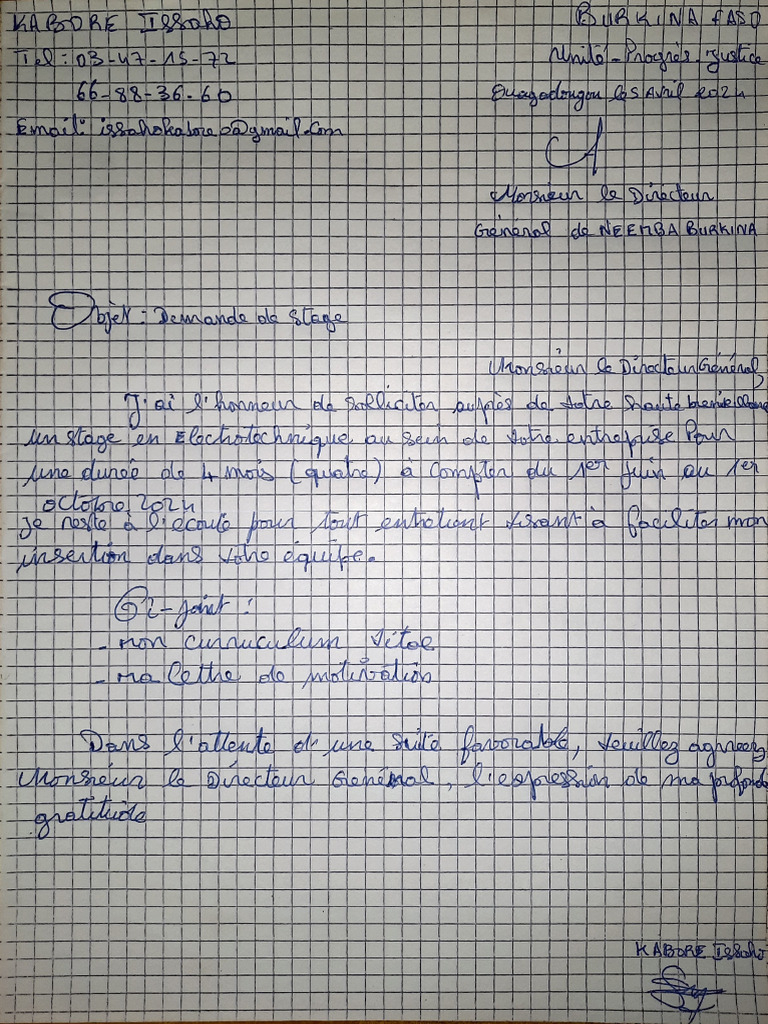 KABORE Issaho
BURKINA FASO
Tel : 03-47-15-72
Unité - Progrès - Justice
66-88-36-60
Ouagadougou le 5 Avril 2024
Email: issahokabore0@gmail.com
A
Monsieur le Directeur
Général de NEEMBA BURKINA
Objet : Demande de stage
Monsieur le Directeur Général,
J'ai l'honneur de solliciter auprès de votre haute bienveillance
un stage en Electrotechnique au sein de votre entreprise Pour
une durée de 4 mois (quatre) à compter du 1er juin au 1er
octobre 2024
je reste à l'écoute pour tout entretient visant à faciliter mon
insertion dans votre équipe.
Ci-joint :
- mon curruculum vitae
- ma lettre de motivation
Dans l'attente d'une suite favorable, veuillez agréez
Monsieur le Directeur Général, l'expression de ma profonde
gratitude
KABORE Issaho